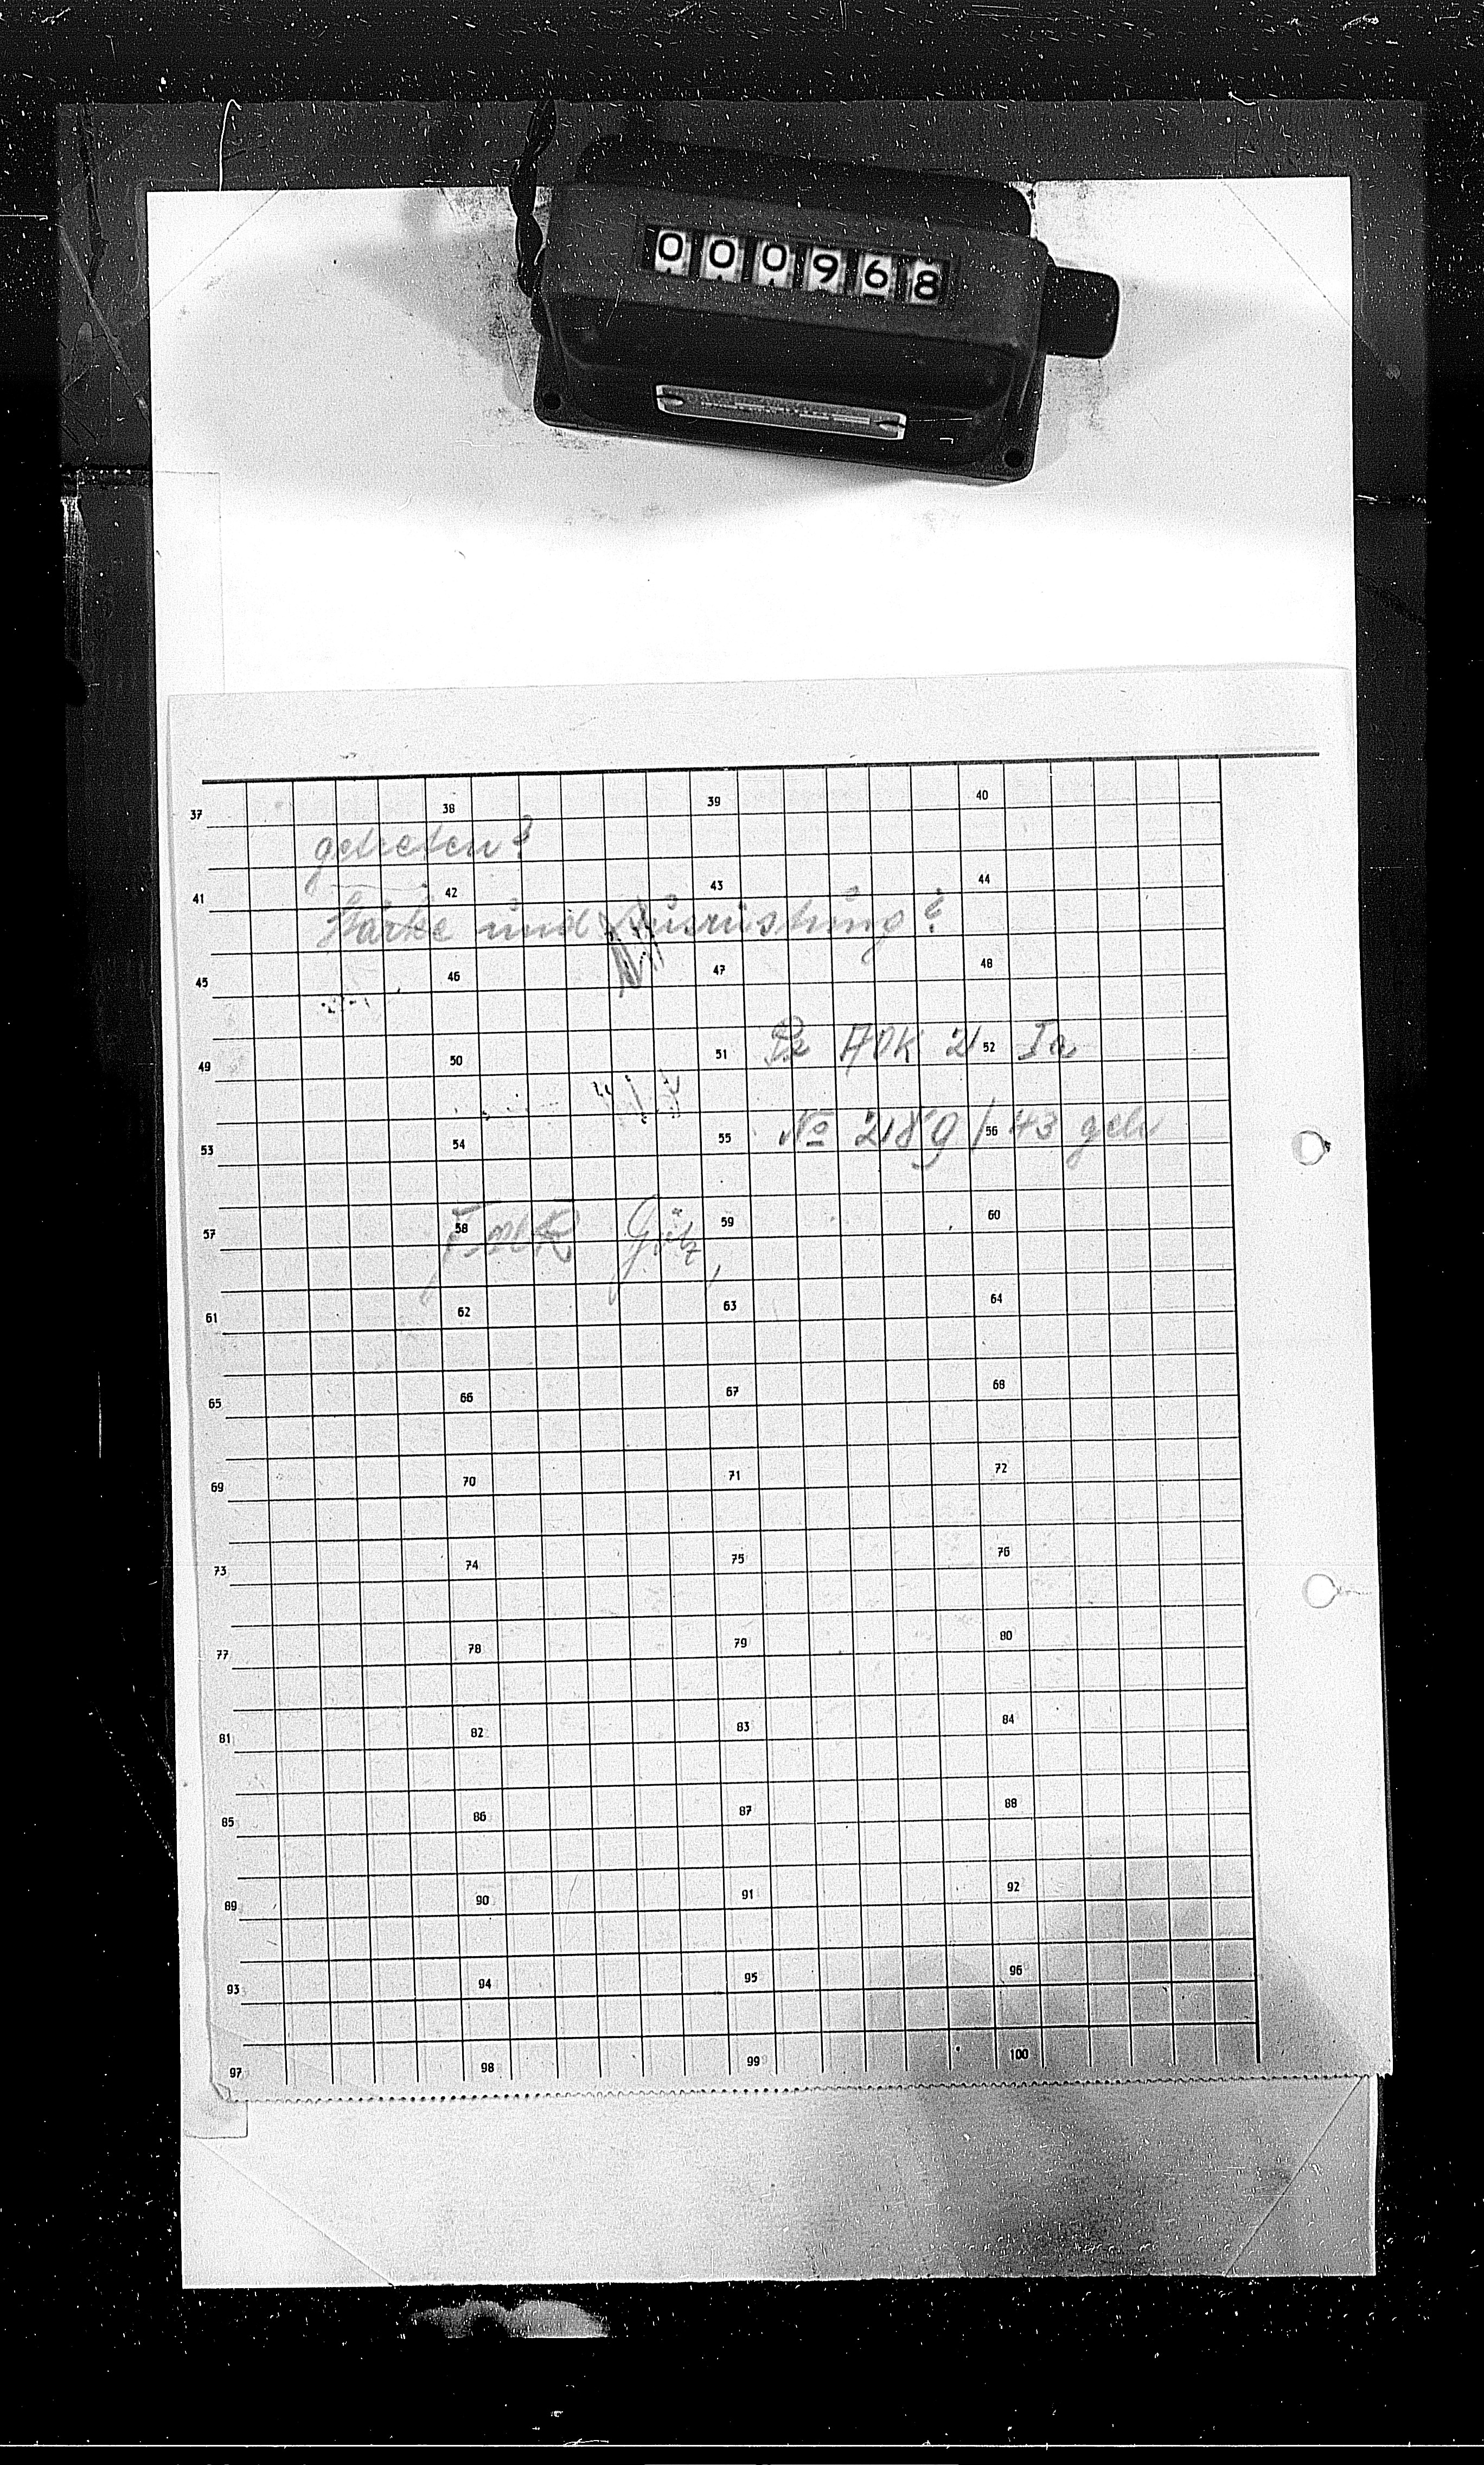 000968
37 38 39 40
getreten?
41 42 43 44
Stärke und Ausrüstung?
45 46 47 48
Pz AOK 2 Ia
49 50 51 52
No 289/43 geh
53 54 55 56
Götz
57 58 59 60
61 62 63 64
65 66 67 68
69 70 71 72
73 74 75 76
77 78 79 80
81 82 83 84
85 86 87 88
89 90 91 92
93 94 95 96
97 98 99 100